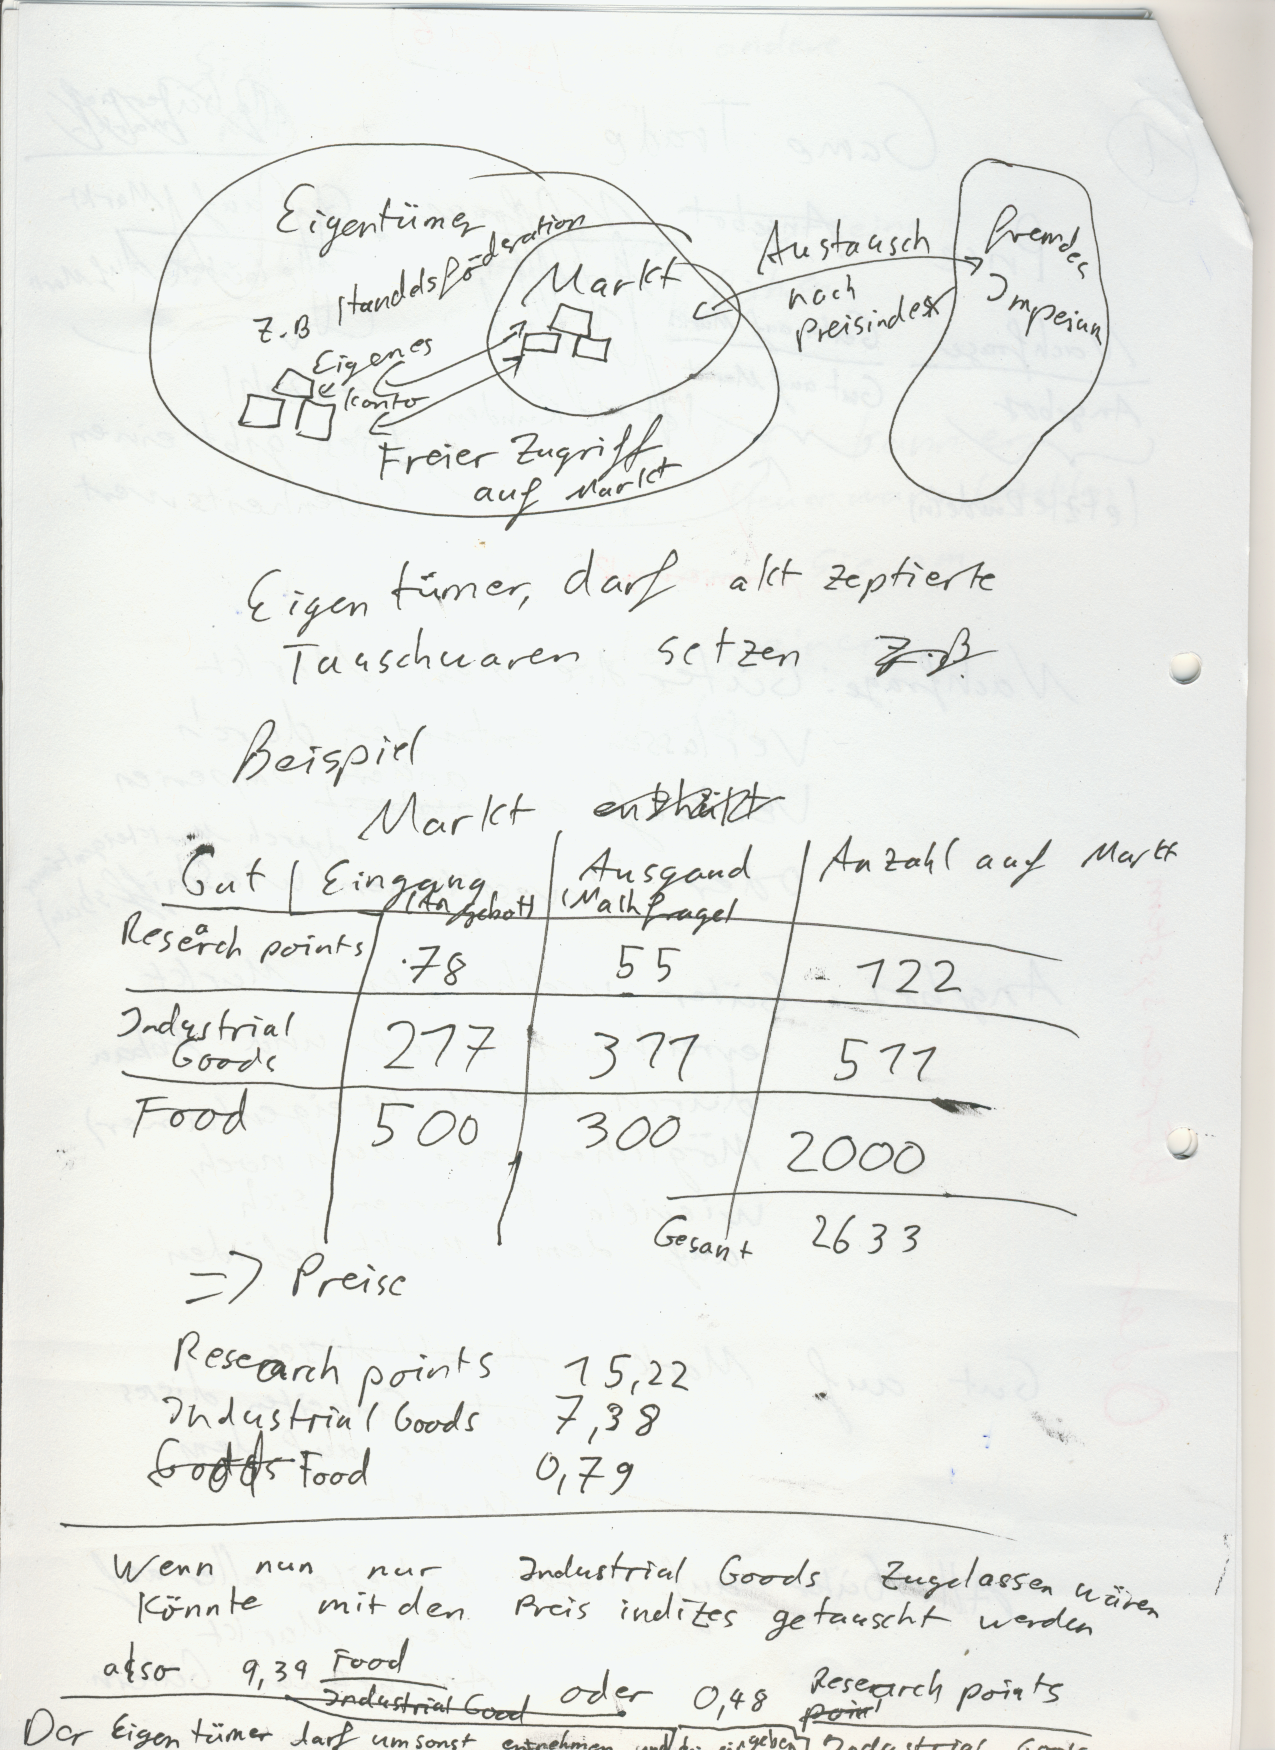 Eigentümer
z.B Handelsföderation
Markt
Eigenes
Konto
Freier Zugriff
auf Markt
Austausch
nach
Preisindex
fremdes
Imperium
Eigentümer, darf aktzeptierte
Tauschwaren setzen z.B
Beispiel
Markt enthält
Gut Eingang Ausgand Anzahl auf Markt
(Angebot) (Nachfrage)
Research points 78 55 122
Industrial
Goods 217 311 511
Food 500 300 2000
Gesamt 2633
=> Preise
Research points 15,22
Industrial Goods 7,38
Goods Food 0,79
Wenn nun nur Industrial Goods Zugelassen wären
Könnte mit den Preisindizes getauscht werden
also 9,39 Food
Industrial Good oder 0,48 Research points
point
Der Eigentümer darf umsonst entnehmen und eingeben Industrial Goods